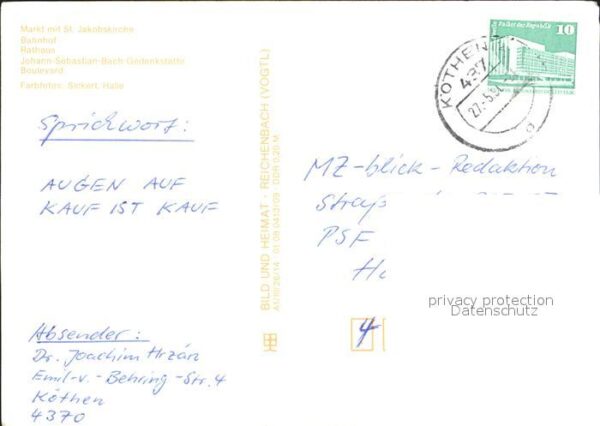 Markt mit St. Jakobskirche
Bahnhof
Rathaus
Johann-Sebastian-Bach Gedenkstätte
Boulevard
Farbfotos: Siekert, Halle
Sprichwort:
AUGEN AUF
KAUF IST KAUF
Absender:
Dr. Joachim Hrzán
Emil-v.-Behring-Str. 4
Köthen
4370
BILD UND HEIMAT · REICHENBACH (VOGTL)
A1/III/26/14 01 08 0413/09 DDR 0,20 M
Palast der Republik
10
KÖTHEN
437
MZ-blick-Redaktion
PSF
4
privacy protection
Datenschutz